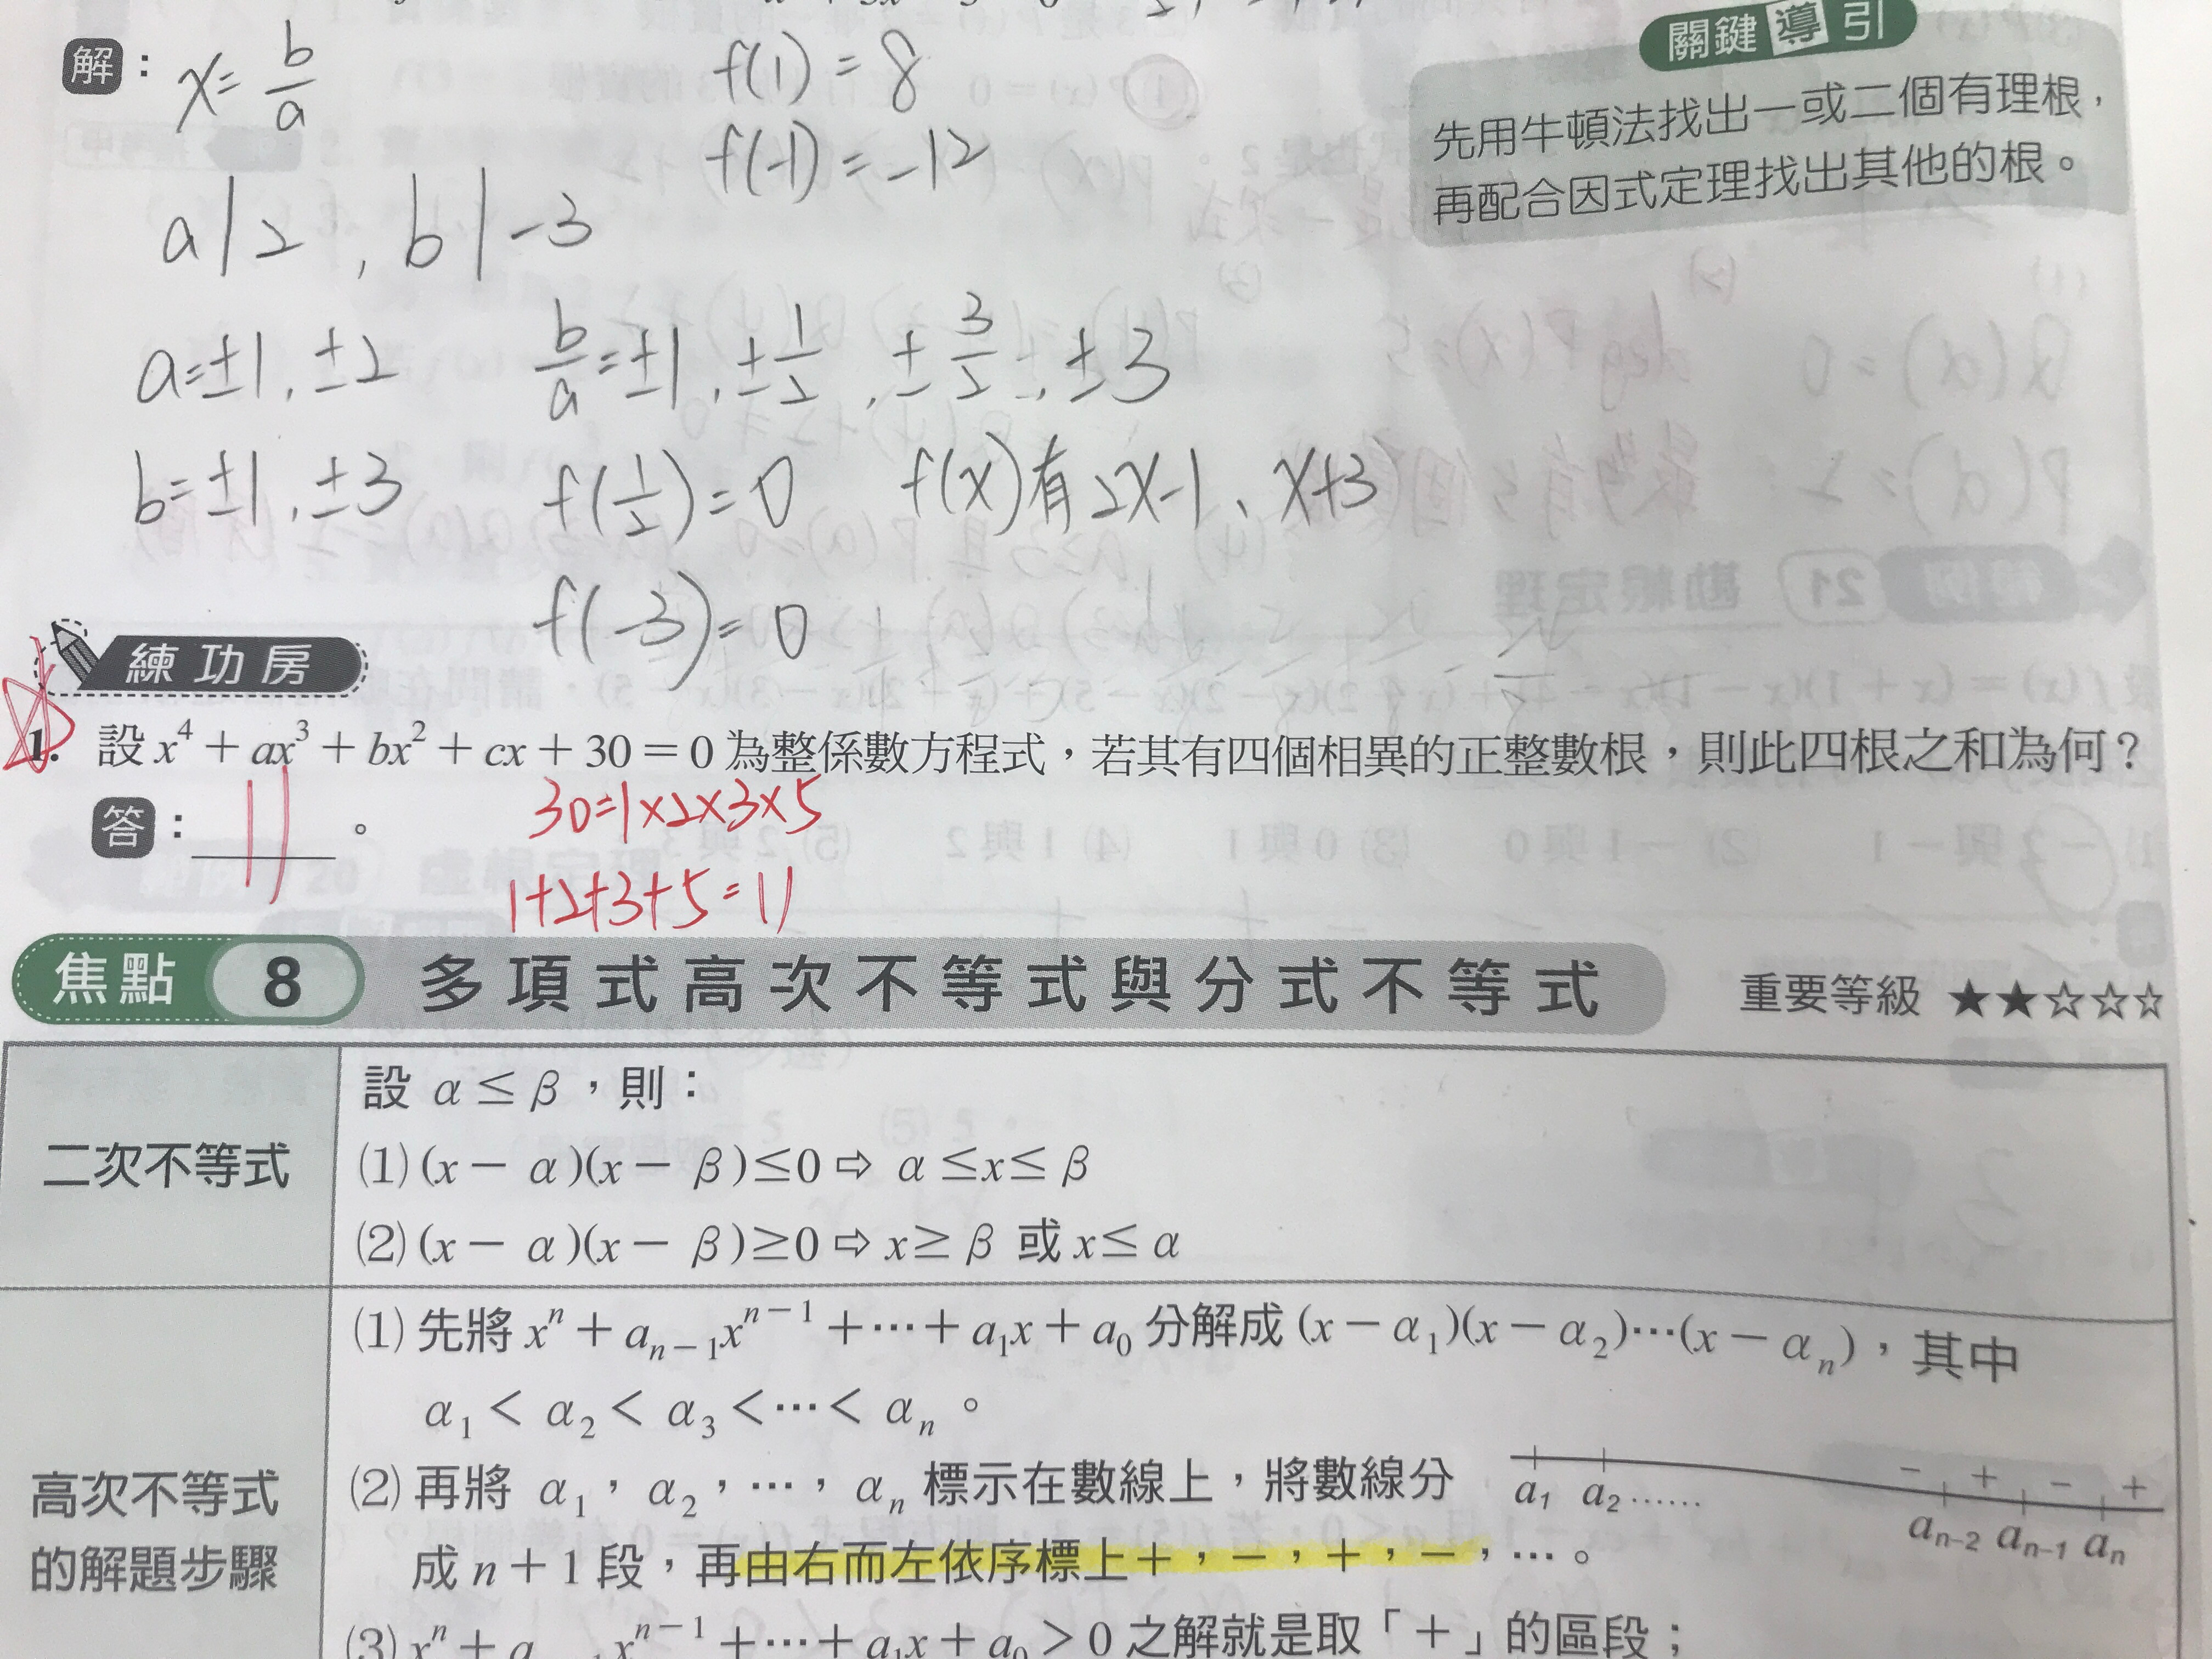 關鍵導引
先用牛頓法找出一或二個有理根，
再配合因式定理找出其他的根。
解：x = b/a
f(1) = 8
f(-1) = -12
a|2 , b|-3
a=±1, ±2
b/a = ±1, ±1/2, ±3/2, ±3
b=±1, ±3
f(1/2) = 0
f(x)有2x-1、x+3
f(-3) = 0
練功房
1. 設 x⁴ + ax³ + bx² + cx + 30 = 0 為整係數方程式，若其有四個相異的正整數根，則此四根之和為何？
答：11。
30=1×2×3×5
1+2+3+5=11
焦點 8 多項式高次不等式與分式不等式 重要等級 ★★☆☆☆
二次不等式
設 α ≤ β，則：
(1) (x － α)(x － β)≤0 ⇨ α ≤x≤ β
(2) (x － α)(x － β)≥0 ⇨ x≥ β 或 x≤ α
高次不等式
的解題步驟
(1) 先將 xⁿ + aₙ₋₁xⁿ⁻¹ + ⋯ + a₁x + a₀ 分解成 (x － α₁)(x － α₂)⋯(x － αₙ)，其中
α₁ < α₂ < α₃ < ⋯ < αₙ。
(2) 再將 α₁，α₂，⋯，αₙ 標示在數線上，將數線分
成 n + 1 段，再由右而左依序標上＋，－，＋，－，⋯。
－ ＋ － ＋
a₁ a₂ ...... aₙ₋₂ aₙ₋₁ aₙ
(3) xⁿ + aₙ₋₁xⁿ⁻¹ + ⋯ + a₁x + a₀ > 0 之解就是取「＋」的區段；